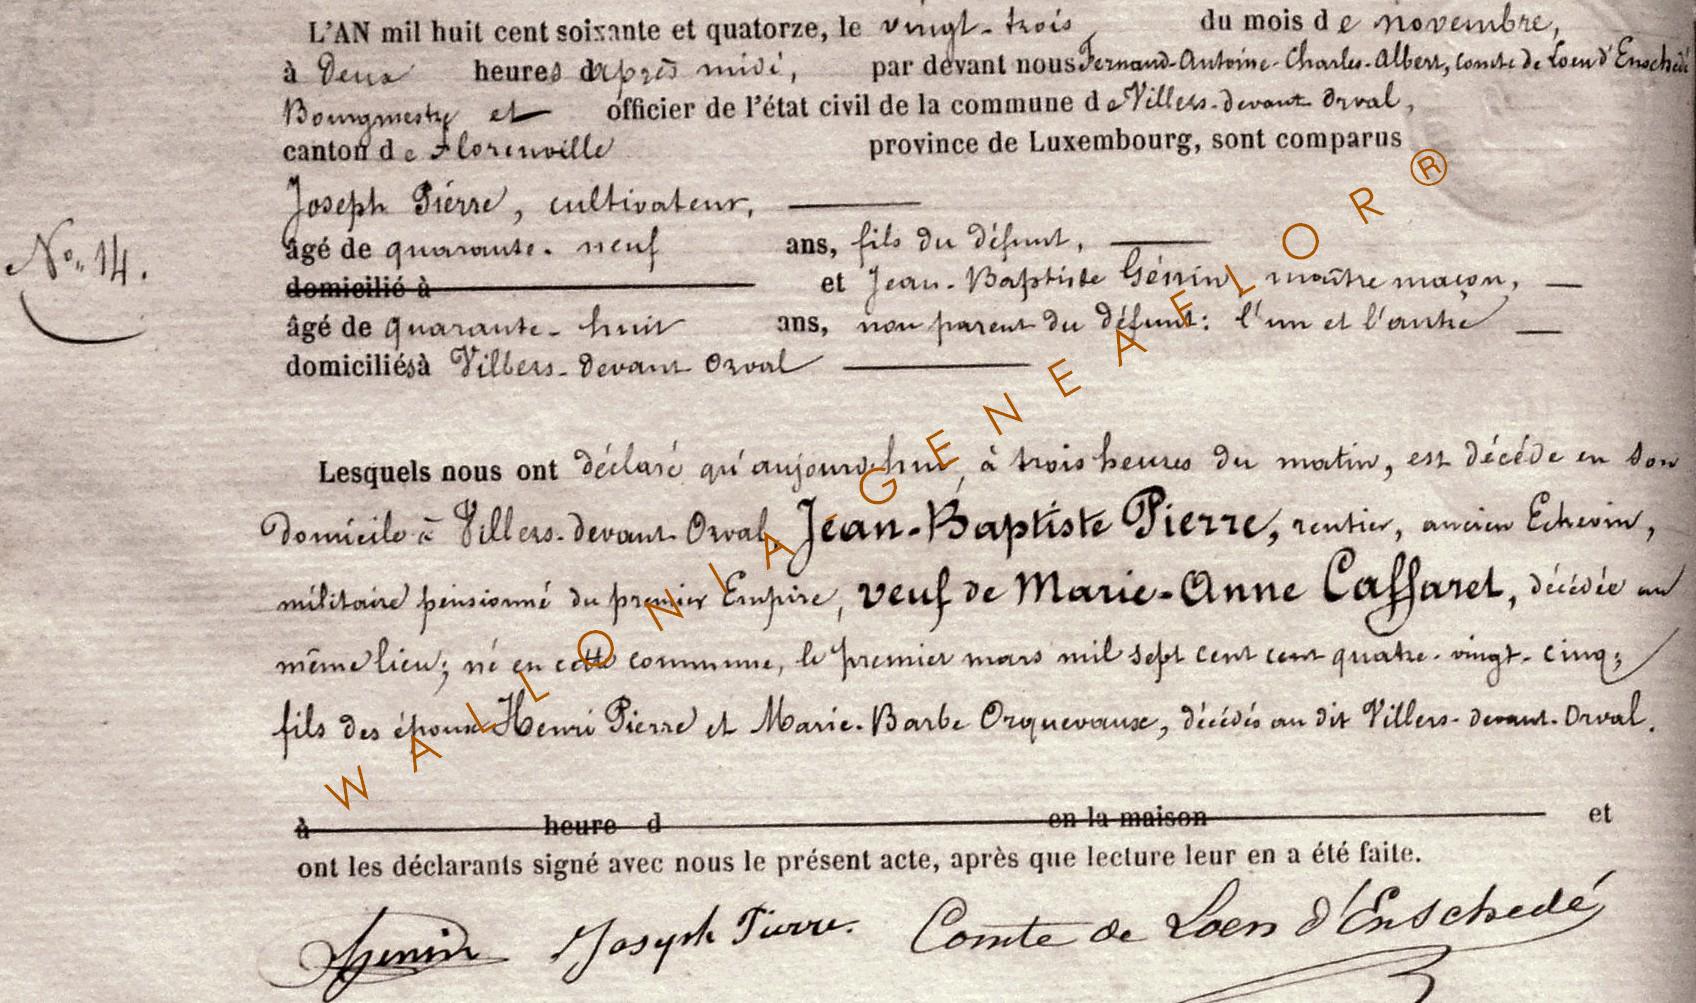 L'AN mil huit cent soixante et quatorze, le vingt-trois du mois de novembre,
à deux heures d'après midi, par devant nous Fernand-Antoine-Charles-Albert, comte de Loen d'Enschedé
Bourgmestre et officier de l'état civil de la commune de Villers-devant Orval,
canton de Florenville province de Luxembourg, sont comparus
Joseph Pierre, cultivateur,
âgé de quarante-neuf ans, fils du défunt,
No. 14.
domicilié à et Jean-Baptiste Génin maître maçon,
âgé de quarante-huit ans, non parent du défunt: l'un et l'autre
domiciliés à Villers-devant Orval
Lesquels nous ont déclaré qu'aujourd'hui, à trois heures du matin, est décédé en son
domicile à Villers-devant-Orval, Jean-Baptiste Pierre, rentier, ancien Echevin,
militaire pensionné du premier Empire, veuf de Marie-Anne Caffaret, décédée au
même lieu; né en cette commune, le premier mars mil sept cent cent quatre-vingt-cinq;
fils des époux Henri Pierre et Marie-Barbe Orquevaux, décédés au dit Villers-devant-Orval.
à heure d en la maison et
ont les déclarants signé avec nous le présent acte, après que lecture leur en a été faite.
Joseph Pierre. Comte de Loen d'Enschedé
WALLONIA GENEAFLOR®